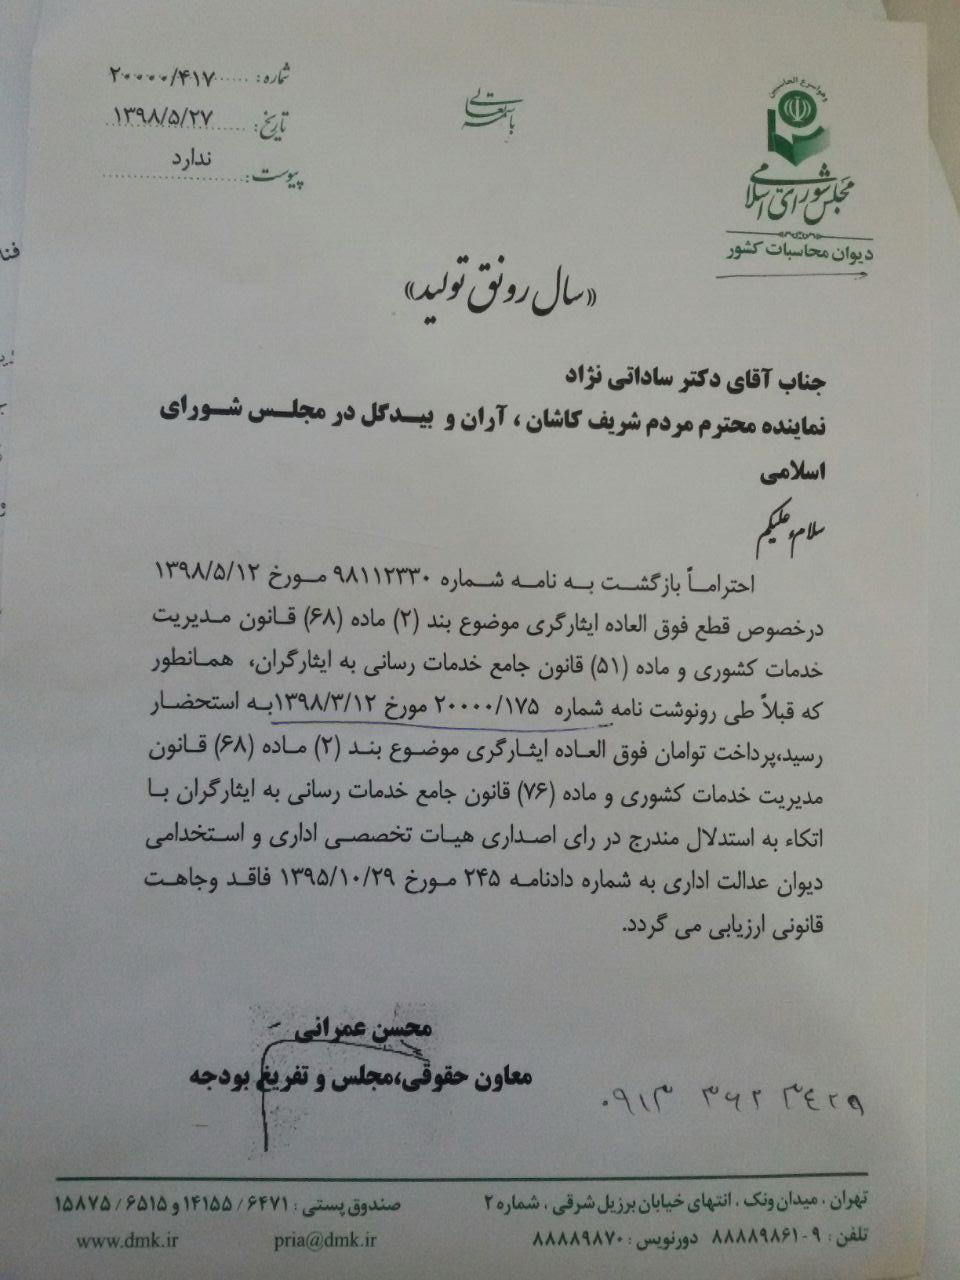 وهو اسرع الحاسبین
مجلس شورای اسلامی
دیوان محاسبات کشور
باسمه تعالی
شماره: ۲۰۰۰۰/۴۱۷
تاریخ: ۱۳۹۸/۵/۲۷
پیوست: ندارد
«سال رونق تولید»
جناب آقای دکتر ساداتی نژاد
نماینده محترم مردم شریف کاشان ، آران و بیـدگل در مجلـس شـورای
اسلامی
سلام علیکم
احتراماً بازگشت بـه نامه شـماره ۹۸۱۱۲۳۳۰ مـورخ ۱۳۹۸/۵/۱۲
درخصوص قطع فوق العاده ایثارگری موضوع بند (۲) ماده (۶۸) قـانون مـدیریت
خدمات کشوری و ماده (۵۱) قانون جامع خدمات رسانی به ایثارگران، همـانطور
که قبلاً طی رونوشت نامه شماره ۲۰۰۰۰/۱۷۵ مورخ ۱۳۹۸/۳/۱۲بـه استحضار
رسید،پرداخت توامان فوق العـاده ایثـارگری موضـوع بنـد (۲) مـاده (۶۸) قـانون
مدیریت خدمات کشوری و ماده (۷۶) قانون جامع خدمات رسانی به ایثارگران با
اتکاء به استدلال مندرج در رای اصـداری هیـات تخصصـی اداری و اسـتخدامی
دیوان عدالت اداری به شماره دادنامه ۲۴۵ مـورخ ۱۳۹۵/۱۰/۲۹ فاقـد وجاهـت
قانونی ارزیابی می گردد.
محسن عمرانی
معاون حقوقی،مجلس و تفریغ بودجه
۰۹۱۳ ۳۶۲ ۳۴۲۹
تهران ، میدان ونک ، انتهای خیابان برزیل شرقی ، شماره ۲
صندوق پستی : ۶۴۷۱ / ۱۴۱۵۵ و ۶۵۱۵ / ۱۵۸۷۵
تلفن : ۹-۸۸۸۸۹۸۶۱ دورنویس : ۸۸۸۸۹۸۷۰
pria@dmk.ir
www.dmk.ir